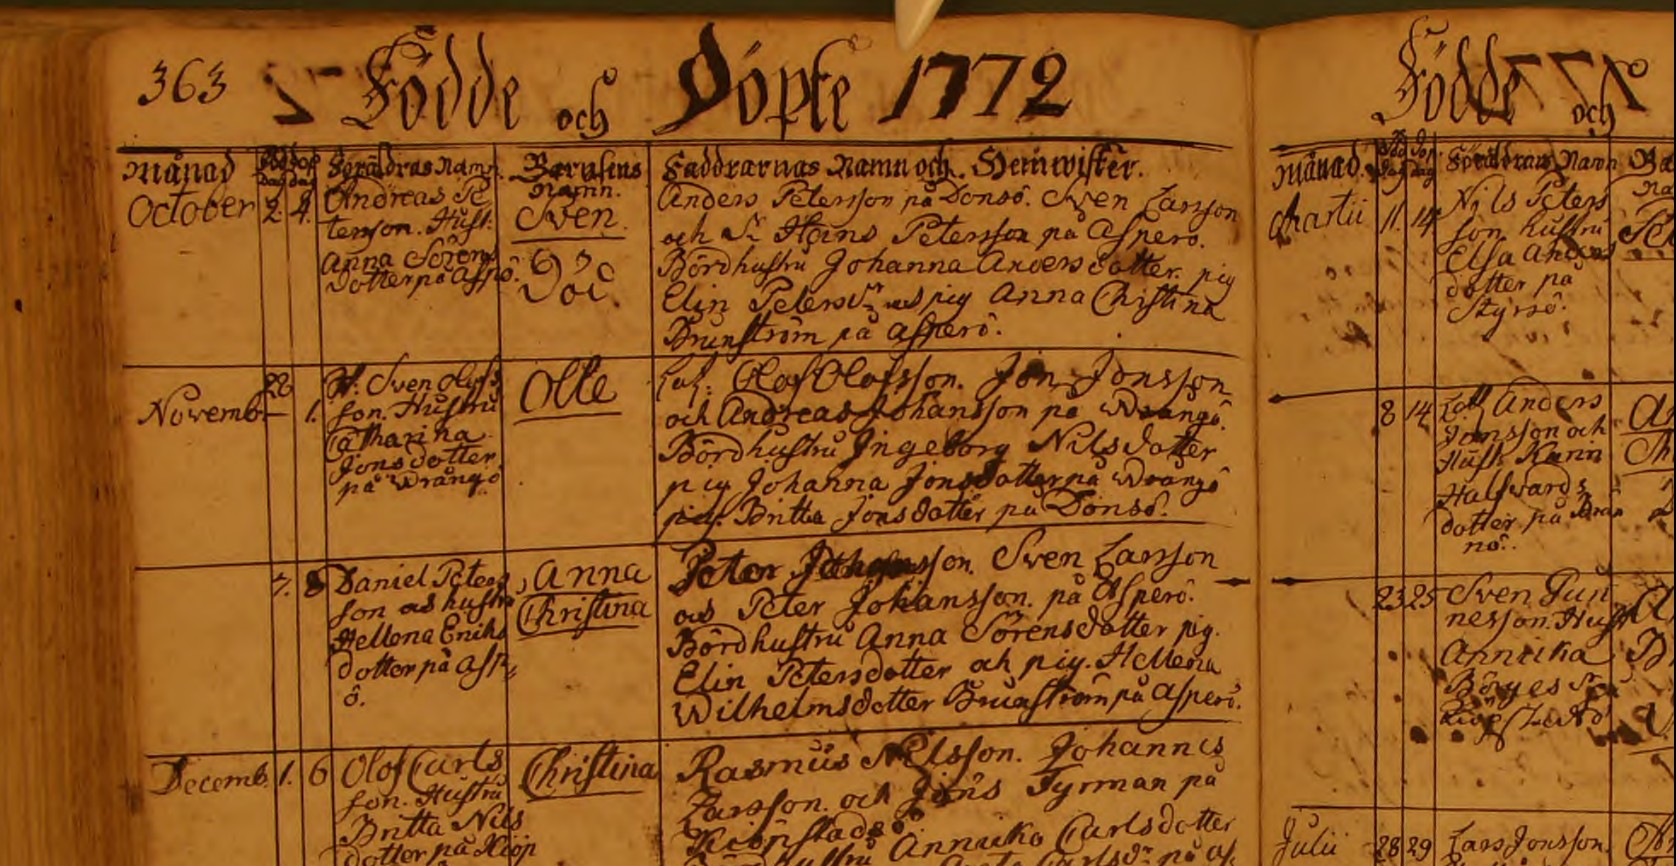 363 Födde och Döpte 1772
Månad
Föräldras Namn
Barnsens
Namn.
Faddrarnas Namn och Hemwister.
October 2. 4.
Andreas Pe
terson. Hust:
Anna Sörens
dotter på Aspö
Sven
Död
Anders Petersson på Donsö. Sven Larsson
och Hans Petersson på Asperö.
Bördhustru Johanna Andersdotter. pig
Elin Petersdr pig Anna Christina
Brunström på Asperö.
Novemb. 28 1.
Sven Olofs
son. Hustru
Catharina
Jonsdotter
på Wrångö
Olle
Olof Olofsson. Jon Jonsson
och Andreas Johansson på Wrångö.
Bördhustru Ingeborg Nilsdotter
pig Johanna Jonsdotter på Wrångö
pig. Britta Jonsdotter på Donsö.
7. 8
Daniel Peters
son hustru
Hellena Eriks
dotter på Asp,
ö.
Anna
Christina
Peter Sven Larsson
Peter Johansson. på Asperö.
Bördhustru Anna Sörensdotter pig.
Elin Petersdotter och pig. Hellena
Wilhelmsdotter Brunström på Asperö.
Decemb. 1. 6
Olof Carls
son. Hustru
Britta Nils
dotter på Kiöp
Christina
Rasmus Nilsson. Johannes
Larsson. och Jöns Tyrman på
Kiöpstadsö
Annika Carlsdotter
Födde och
Månad
Föräldras Namn
Martii 11. 14.
Nils Peters
son hustru
Elsa Anders
dotter på
Styrsö.
8 14
Anders
Jonsson och
Hust Karin
Halfvards
dotter på Brän
nö.
23 25
Sven Gun
nesson. Hust
Annika
Börges
Julii 28 29
Lars Jonsson